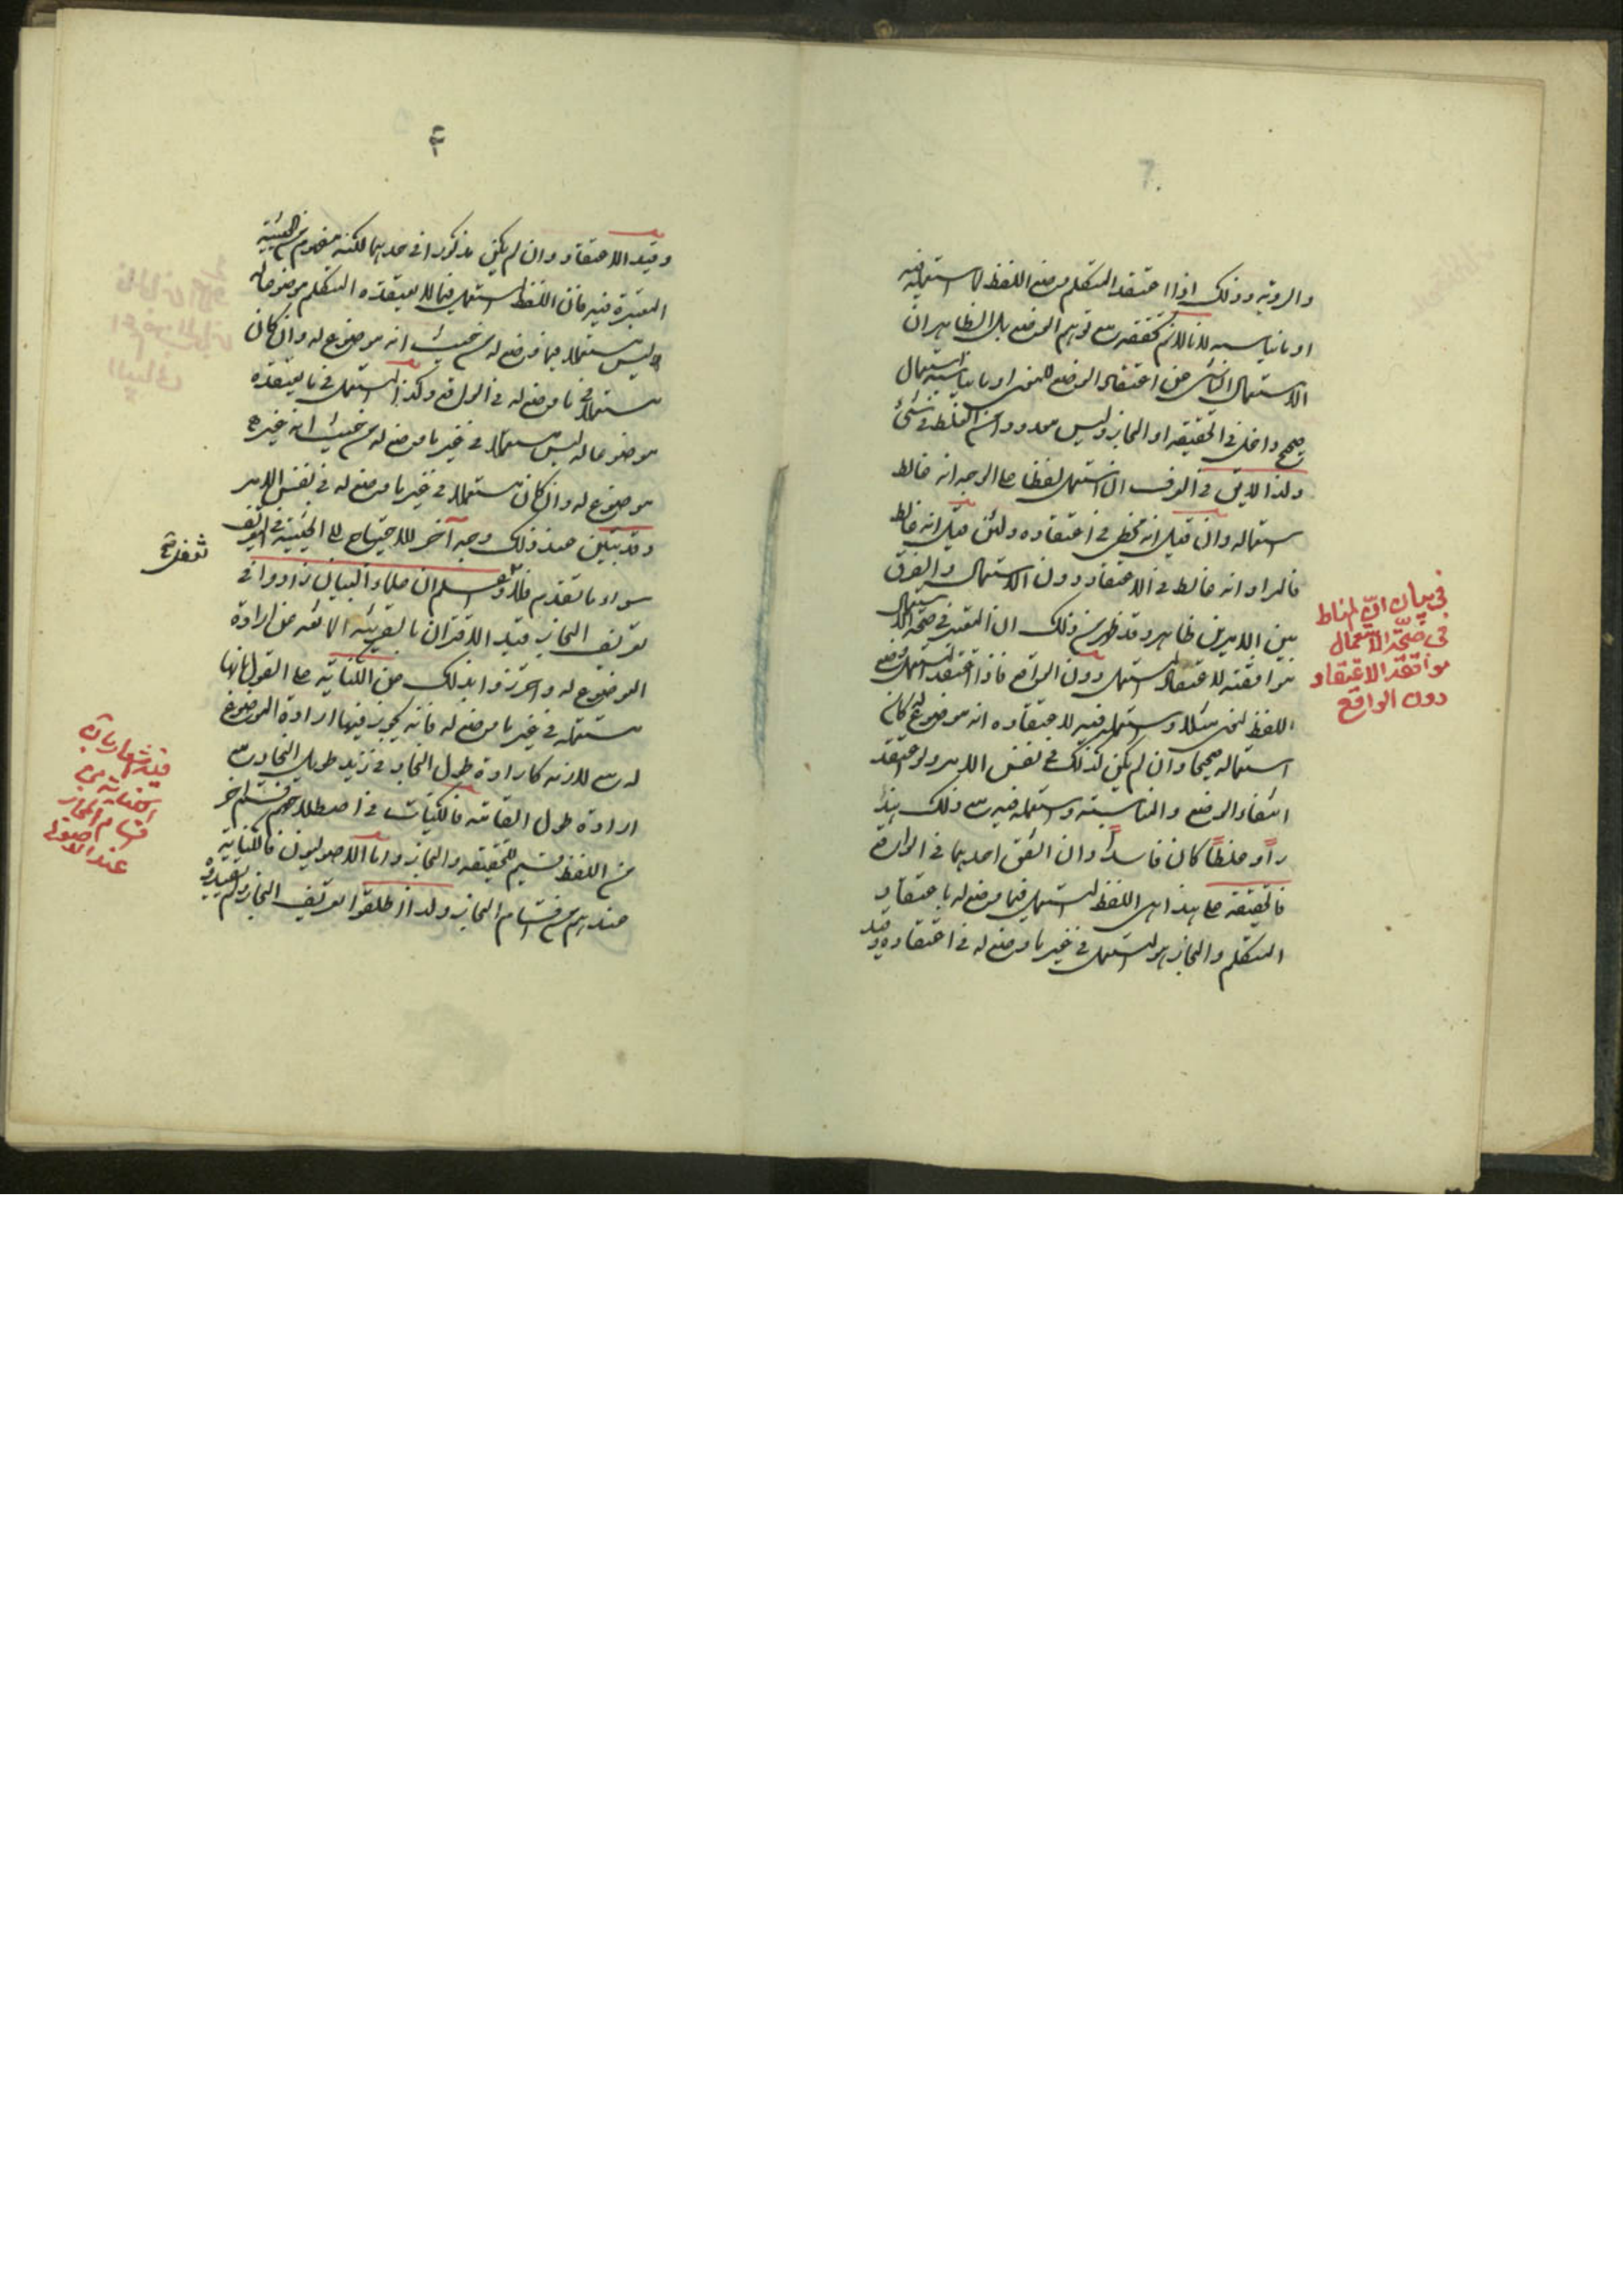 7
والروية وذلك اذا اعتقد المتكلم وضع اللفظ لما استعمله فيه
او ما يناسبه لانا لا نم تحققه مع توهم الوضع بل الظاهر ان
الاستعمال الناشى عن اعتقاد الوضع للمعنى او ما يناسبه استعمال
صحيح داخل فى الحقيقة او المجاز وليس معدودا من الغلط فى شئ
ولذا لا يق فى العرف لمن استعمل لفظا على الوجه انه غالط
استعماله وان قيل انه مخطئ فى اعتقاده ولئن قيل انه غالط
فالمراد انه غالط فى الاعتقاد دون الاستعمال والفرق
بين الامرين ظاهر وقد ظهر من ذلك ان المعتبر فى صحة الاستعمال
موافقته لاعتقاد المستعمل دون الواقع فاذا اعتقد المستعمل وضع
اللفظ لمعنى مثلا واستعمله فيه لاعتقاده انه موضوع له كان
استعماله صحيحا وان لم يكن كذلك فى نفس الامر ولو اعتقد
انتفاء الوضع والمناسبة واستعمله فيه مع ذلك
او غلطا كان فاسدا وان اتفق احدهما فى الواقع
فالحقيقة على هذا هى اللفظ المستعمل فيما وضع له باعتقاد
المتكلم والمجاز هو المستعمل فى غير ما وضع له فى اعتقاده وقيد
فى بيان ان المناط
فى صحة الاستعمال
موافقة الاعتقاد
دون الواقع
۴
وقيد الاعتقاد وان لم يكن مذكورا فى حديهما لكنه مفهوم من الحيثية
المعتبرة فيه فان اللفظ المستعمل فيما لا يعتقده المتكلم موضوعا له
ليس مستعملا فيما وضع له من حيث انه موضوع له وان كان
مستعملا فى ما وضع له فى الواقع وكذا المستعمل فى ما يعتقده
موضوعا له ليس مستعملا فى غير ما وضع له من حيث انه غير
موضوع له وان كان مستعملا فى غير ما وضع له فى نفس الامر
وقد تبين عند ذلك وجه آخر للاحتياج الى الحيثية فى التعريف
سواء ما تقدم فلا تغفل واعلم ان علماء البيان زادوا فى
تعريف المجاز قيد الاقتران بالقرينة المانعة عن ارادة
الموضوع له واحترزوا بذلك عن الكناية على القول بانها
مستعملة فى غير ما وضع له فانه يجوز فيها ارادة الموضوع
له مع لازمه كارادة طول النجاد فى زيد طويل النجاد مع
ارادة طول القامة فالكنايات فى اصطلاحهم قسم آخر
من اللفظ قسيم للحقيقة والمجاز واما الاصوليون فالكناية
عندهم من اقسام المجاز ولذا اطلقوا تعريف المجاز ولم يقيدوه
فيه اشعار بان
الكناية من
اقسام المجاز
عند الاصولى